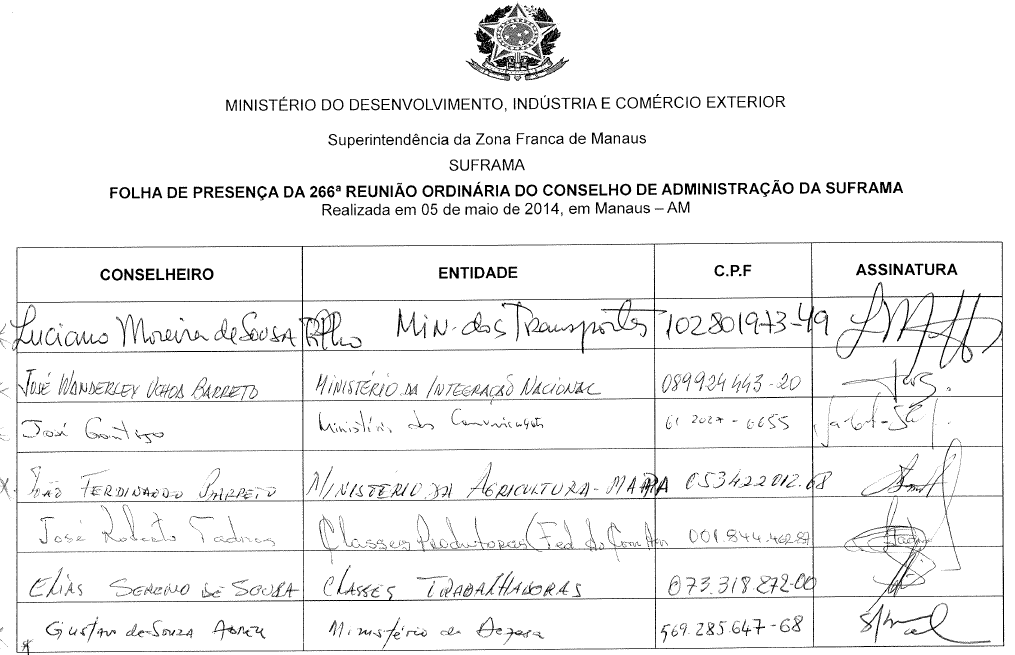 MINISTÉRIO DO DESENVOLVIMENTO, INDÚSTRIA E COMÉRCIO EXTERIOR
Superintendência da Zona Franca de Manaus
SUFRAMA
FOLHA DE PRESENÇA DA 266ª REUNIÃO ORDINÁRIA DO CONSELHO DE ADMINISTRAÇÃO DA SUFRAMA
Realizada em 05 de maio de 2014, em Manaus – AM
CONSELHEIRO ENTIDADE C.P.F ASSINATURA
Luciano Moreira de Sousa Filho Min. dos Transportes 102801973-49
JOSÉ WANDERLEY UCHOA BARRETO MINISTÉRIO DA INTEGRAÇÃO NACIONAL 089924443-20
José Gontijo Ministério das Comunicações 61 2027-6655
JOÃO FERDINANDO BARRETO MINISTÉRIO DA AGRICULTURA-MAPA 053422012.68
José Roberto Tadros Classes Produtoras (Fed. do Com Am 001.844.462.87
ELIAS SERENO DE SOUSA CLASSES TRABALHADORAS 073.318.272-00
Gustavo de Souza Abreu Ministério da Defesa 569.285.647-68